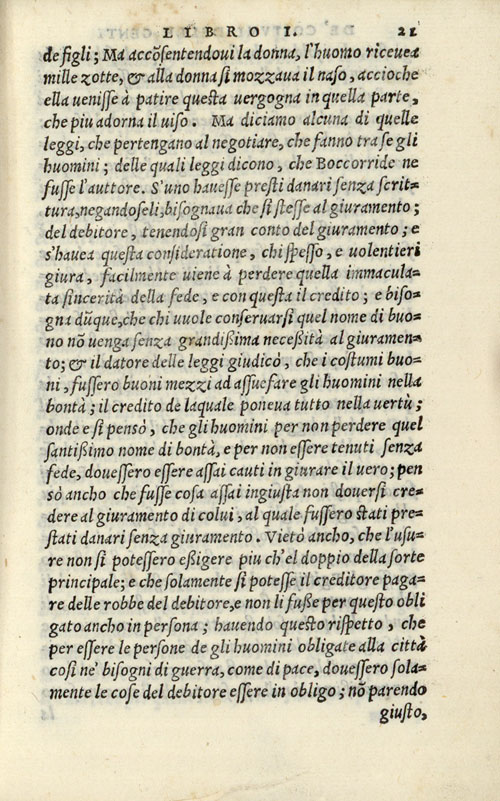 LIBRO I. 21
de figli; Ma accōsentendoui la donna, l'huomo riceuea
mille zotte, & alla donna si mozzaua il naso, accioche
ella uenisse à patire questa uergogna in quella parte,
che piu adorna il uiso. Ma diciamo alcuna di quelle
leggi, che pertengano al negotiare, che fanno tra se gli
huomini; delle quali leggi dicono, che Boccorride ne
fusse l'auttore. S'uno hauesse presti danari senza scrit=
tura, negandoseli, bisognaua che si stesse al giuramento;
del debitore, tenendosi gran conto del giuramento; e
s'hauea questa consideratione, chi spesso, e uolentieri
giura, facilmente uiene à perdere quella immacula=
ta sincerità della fede, e con questa il credito; e biso=
gna dūque, che chi uuole conseruarsi quel nome di buo=
no nō uenga senza grandißima neceßità al giuramen=
to; & il datore delle leggi giudicò, che i costumi buo=
ni, fussero buoni mezzi ad assuefare gli huomini nella
bontà; il credito de laquale poneua tutto nella uertù;
onde e si pensò, che gli huomini per non perdere quel
santißimo nome di bontà, e per non essere tenuti senza
fede, douessero essere assai cauti in giurare il uero; pen
sò ancho che fusse cosa assai ingiusta non douersi cre=
dere al giuramento di colui, al quale fussero stati pre=
stati danari senza giuramento. Vietò ancho, che l'usu=
re non si potessero eßigere piu ch'el doppio della sorte
principale; e che solamente si potesse il creditore paga=
re delle robbe del debitore, e non li fuße per questo obli
gato ancho in persona; hauendo questo rispetto, che
per essere le persone de gli huomini obligate alla città
cosi ne' bisogni di guerra, come di pace, douessero sola=
mente le cose del debitore essere in obligo; nō parendo
giusto,